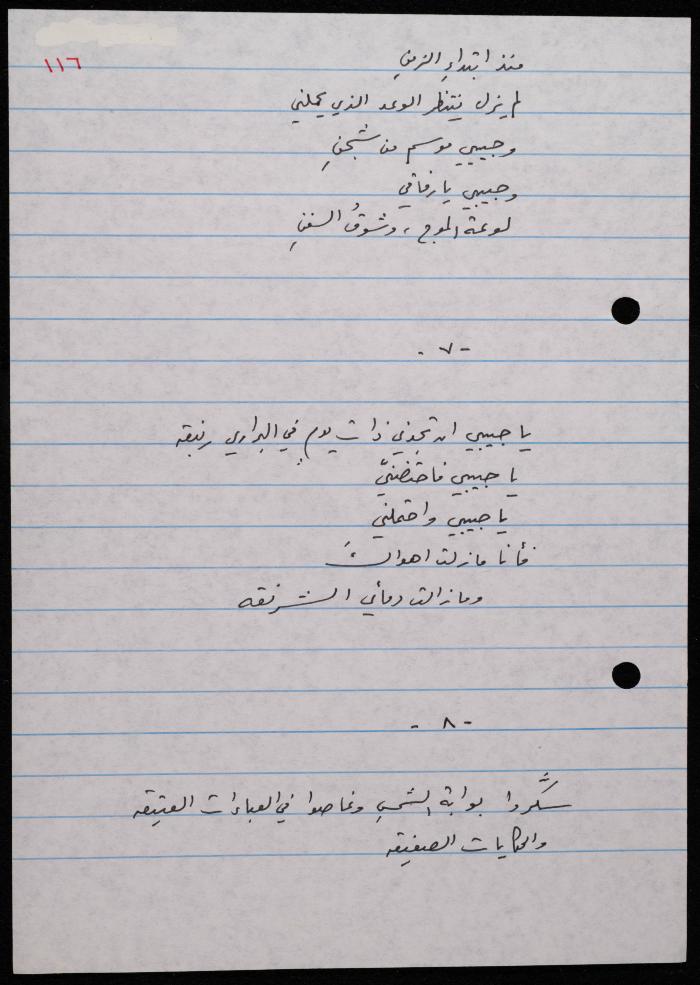 ١١٦
منذ ابتداءِ الزمنِ
لم يزل ينتظر الوعد الذي يحملني
وحبيبي موسم من شجنِ
وحبيبي يا رفاقي
لوعة الموج ، وشوقُ السفنِ
- ٧ -
يا حبيبي ان تجدني ذات يوم في البراري زنبقه
يا حبيبي فاحتضنّي
يا حبيبي واحتملني
فأنا مازلت اهواكَ
ومازالت دمائي الشرنقه
- ٨ -
سكّروا بوابة الشمسِ وغاصوا في العباءات العتيقه
والحكايات الصفيقه